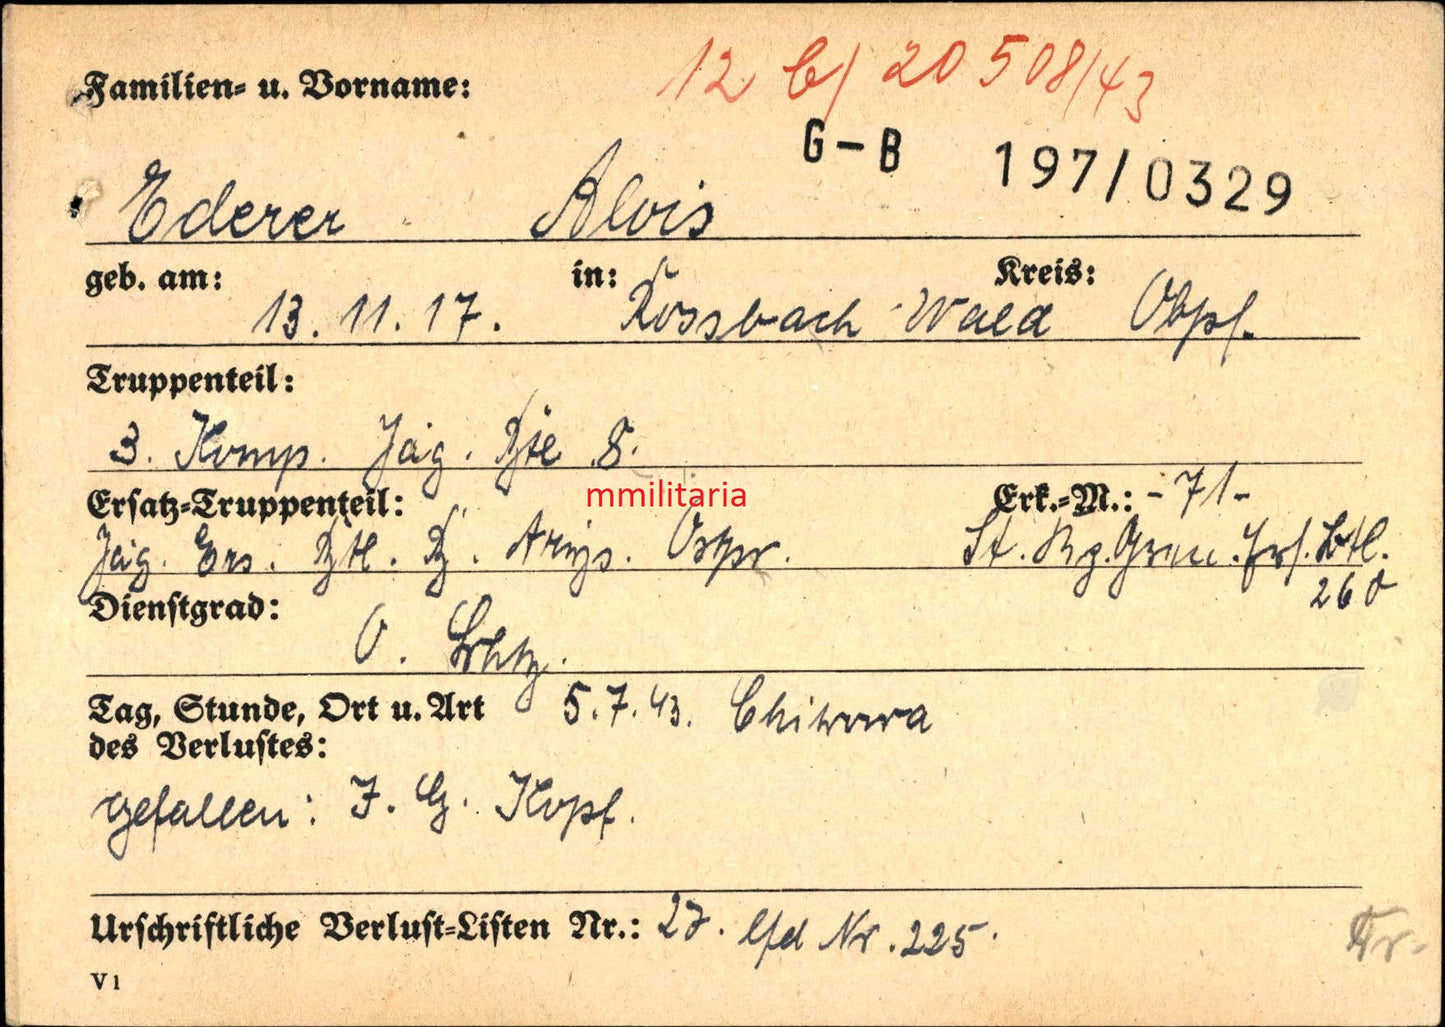 12 b/ 20 508/43
Familien- u. Vorname:
G-B 197/0329
Ederer Alois
geb. am: in: Kreis:
13. 11. 17. Rossbach-Wald Obpf.
Truppenteil:
3. Komp. Jäg. Btl 8.
Ersatz-Truppenteil: mmilitaria Erk.-M.: -71-
Jäg. Ers. Btl. Arys. Ostpr. St. Gren. Ers. Btl.
260
Dienstgrad:
O.
Tag, Stunde, Ort u. Art 5.7.43.
des Verlustes:
gefallen: J. G. Kopf.
Urschriftliche Verlust-Listen Nr.: 27. lfd Nr. 225.
V1